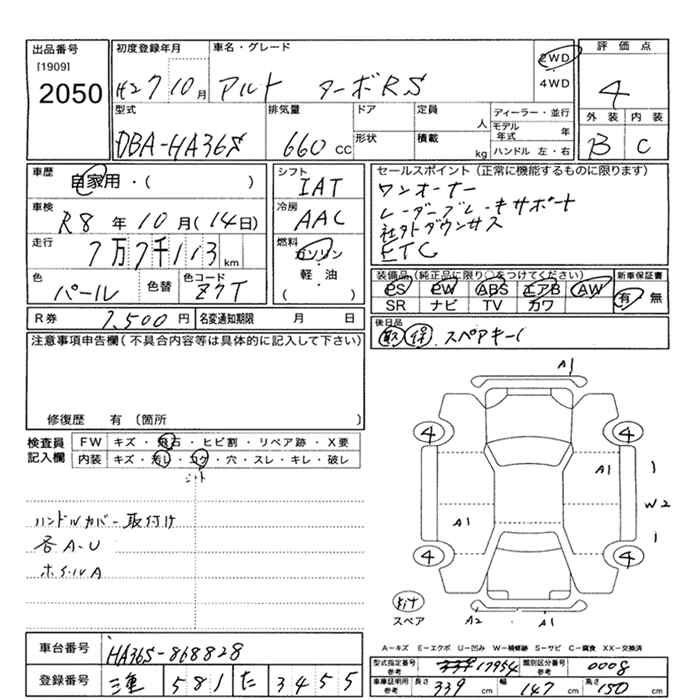 出品番号
[1909]
2050
初度登録年月
H27 10月
車名・グレード
アルト ターボRS
2WD
4WD
評価点
4
型式
DBA-HA36S
排気量
660 CC
ドア
形状
定員
人
積載
kg
ディーラー・並行
モデル年式 年
ハンドル 左・右
外装 内装
B C
車歴
自家用・( )
車検
R8 年 10 月 (14日)
走行
7万7千113 km
色
パール
色替
色コード
Z7T
シフト
IAT
冷房
AAC
燃料
ガソリン
・
軽・油
( )
セールスポイント(正常に機能するものに限ります)
ワンオーナー
レーダーブレーキサポート
社外ダウンサス
ETC
装備品(純正品に限り○をつけてください)
PS PW ABS エアB AW
SR ナビ TV カワ
新車保証書
有・無
R券 7,500円
名変通知期限 月 日
後日品
取 保 スペアキー1
注意事項申告欄(不具合内容等は具体的に記入して下さい)
修復歴 有 (箇所 )
検査員記入欄
FW キズ・飛石・ヒビ割・リペア跡・X要
内装 キズ・汚レ・コゲ・穴・スレ・キレ・破レ
シート
ハンドルカバー取付け
各A・U
ホイールA
A1
4 4
A1
A1
W2
4 4
スペア
A2 A1
A-キズ E-エクボ U-凹み W-補修跡 S-サビ C-腐食 XX-交換済
車台番号
HA36S-868828
登録番号
三重 581 た 3455
型式指定番号 参考 17954
類別区分番号 参考 0008
車庫証明用 参考 長さ 339 cm 幅 147 cm 高さ 150 cm